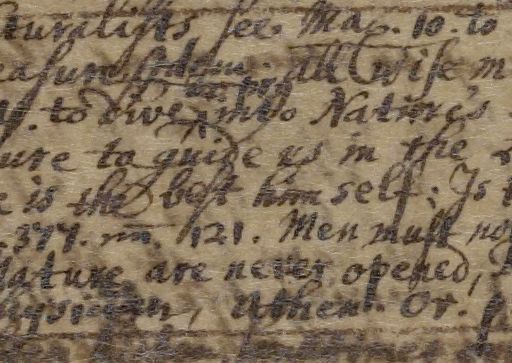 turalists see Max. 10. to
easure all wise, m
y. to dive into Nature's
ure to guide us in the
e is the best himself; Is
. 377. m. 121. Men must no
Nature are never opened,
hysician, Athen. Or.